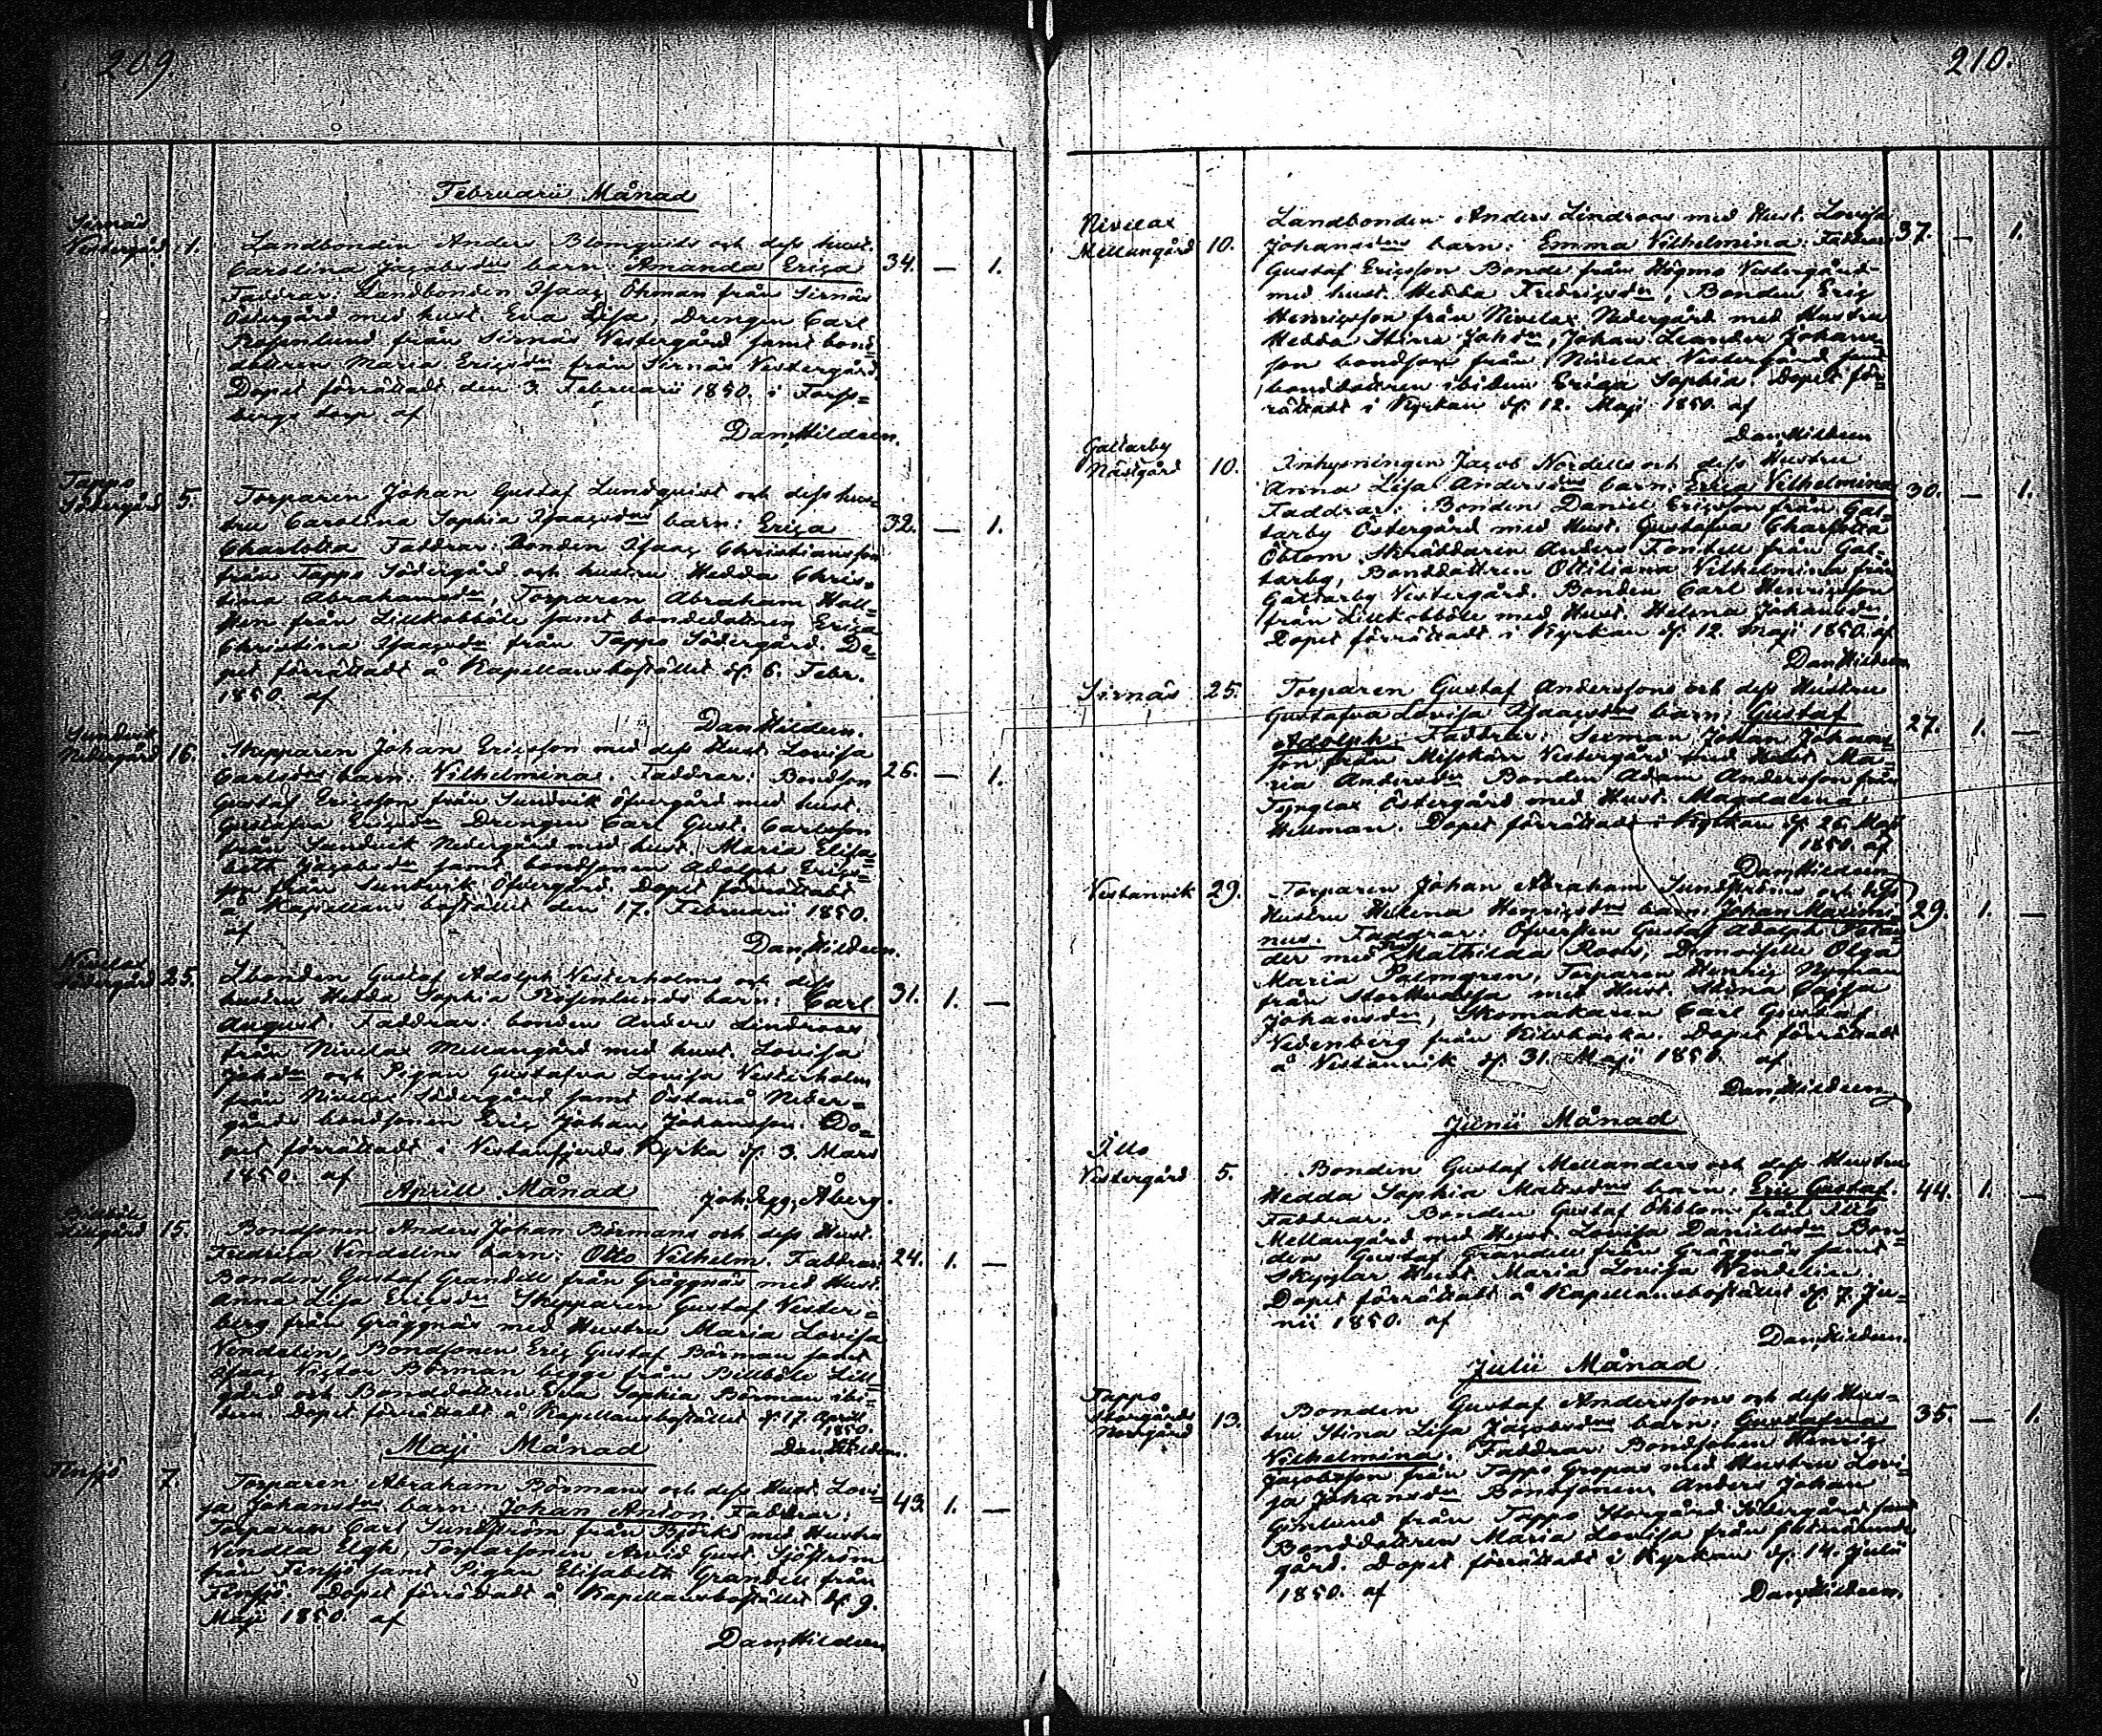 209.
Februarii Månad
Sirnäs
Vestergård 1.
Landbonden Anders Blomqvists och dess hust.
Carolina Jacobsdrs barn: Amanda Erica 34. — 1.
Faddrar: Landbonden Isaac Öhman från Sirnäs
Östergård med hust. Eva Lisa, Drengen Carl
Rosenlund från Sirnäs Vestergård samt bond=
dottren Maria Ericsdr från Sirnäs Vestergård.
Dopet förrättadt den 3. Februarii 1850. i
torp af
Dan. Hildeen.
Tappo
Södergård 5.
Torparen Johan Gustaf Lundqvist och dess hus=
tru Carolina Sophia Isaacsdrs barn: Erica 32. — 1.
Charlotta Faddrar: Bonden Isaac Christiansson
från Tappo Södergård och hustru Hedda Chris=
tina Abrahamsdr, Torparen Abraham Holl=
från Lillkobböle samt bondedottren Erica
Christina Isaacsdr från Tappo Södergård. Do=
pet förrättadt å Kapellansbostället d. 6. Febr.
1850. af
Dan. Hildeen.
Sundvik
Nedergård 16.
Skepparen Johan Ericsson med dess Hust. Lovisa
Carlsdrs barn: Vilhelmina. Faddrar: Bondson 26. — 1.
Gustaf Ericsson från Sundvik Öfvergård med hust.
Gustafva Ericsdr Drengen Carl Gust. Carlsson
från Sundvik Nedergård med hust. Maria Elisa=
beth Jacobsdr samt bondsonen Adolph Erics=
son från Sundvik Öfvergård. Dopet förrättadt
å Kapellans bostället den 17. Februarii 1850.
af
Dan. Hildeen.
Nivelax
Södergård 25.
Gustaf Adolph Vesterholms och dess
hustru Hedda Sophia Rosenlunds barn: Carl 31. 1. —
August. Faddrar: bonden Anders Lindroos
från Nivelax Mellangård med hust. Lovisa
Johdr och Pigan Gustafva Lovisa Vesterholm
från Nivelax Södergård samt Östanå Neder=
gårds bondsonen Eric Johan Johansson. Do=
pet förrättadt i Vestanfjerds Kyrka d. 3. Mars
1850. af
Joh. Åberg.
Aprill Månad
Billböle
Lillgård 15.
Bondsonen Anders Johan Börmans och dess Hust.
Fredrica Vendelins barn: Otto Vilhelm. Faddrar: 24. 1. —
Bonden Gustaf Grandell från Gräggnäs med Hust.
Anna Lisa Ericsdr Skepparen Gustaf Vester=
berg från Gräggnäs med Hustru Maria Lovisa
Vendelin, Bondsonen Eric Gustaf Börman samt
Isaac Victor Börman begge från Billböle Lill=
gård och Bonddottren Eva Sophia Börman ibi=
dem. Dopet förrättadt å Kapellansbostället d. 17. Aprill
1850.
Dan. Hildeen.
Maji Månad
Finsjö 7.
Torparen Abraham Börmans och dess Hust. Lovi=
sa Johansdrs barn: Johan Anton. Faddrar: 43. 1. —
Torparen Carl Sundström från Björkö med Hustru
Vendla Elgh, Torparsonen Arvid Gust. Sjöström
från Finsjö samt Pigan Elisabeth Grandell från
Finsjö. Dopet förrättadt å Kapellansbostället d. 9.
Maji 1850. af
Dan. Hildeen
210.
Nivelax
Mellangård 10.
Landbonden Anders Lindroos med Hust. Lovisa
Johansdrs barn: Emma Vilhelmina: Faddrar 37. — 1.
Gustaf Ericsson Bonde från Högmo Vestergård
med hust. Hedda Fredricsdr, Bonden Eric
Henricsson från Nivelax Nedergård med Hustru
Hedda Stina Johdr, Johan Leander Johans=
son bondson från Nivelax Vestergård samt
bonddottren ibidem Erica Sophia. Dopet för=
rättadt i Kyrkan d. 12. Maji 1850. af
Dan. Hildeen
Galtarby
Nästgård 10.
Inhysningen Jacob Nordells och dess Hustru
Anna Lisa Andersdrs barn: Erica Vilhelmina 30. — 1.
Faddrar: Bonden Daniel Ericsson från Gal=
tarby Östergård med Hust. Gustafva Charlotta
Öblom Skräddaren Anders Fontell från Gal=
tarby, Bonddottren Ottiliana Vilhelmina från
Galtarby Vestergård. Bonden Carl Henricsson
från Lillkobböle med Hust. Helena Johansdr.
Dopet förrättadt i Kyrkan d. 12. Maji 1850. af
Dan. Hildeen
Sirnäs 25.
Torparen Gustaf Anderssons och dess Hustru
Gustafva Lovisa Isaacsdrs barn: Gustaf 27. 1. —
Adolph. Faddrar: Seeman Johan Johans=
son från Misskärr Vestergård med Hust. Ma=
ria Andersdr Bonden Adam Andersson från
Tynglax Östergård med Hust. Magdalena
Hellman. Dopet förrättadt i Kyrkan d. 26. Maji
1850. af
Dan. Hildeen
Vestanvik 29.
Torparen Johan Abraham Sundströms och dess
Hustru Helena Henricsdrs barn: Johan Maximi= 29. 1. —
nus. Faddrar: Öfversten Gustaf Adolph
der med Fru Mathilda Roos, Demoiselle Olga
Maria Palmgren, Torparen Henric Nyman
från med Hust. Stina Cajsa
Johansdr, Skomakaren Carl Gustaf
Vedenberg från Kilsbacka. Dopet förrättadt
å Vestanvik d. 31. Maji 1850. af
Dan. Hildeen
Junii Månad
Illo
Vestergård 5.
Bonden Gustaf Mellanders och dess Hustru
Hedda Sophia Mattsdrs barn: Eric Gustaf. 44. 1. —
Faddrar: Bonden Gustaf Ekblom från Illo
Mellangård med Hust. Lovisa Danielsdr Bon=
den Gustaf Grandell från Gräggnäs samt
Hust. Maria Lovisa Wendelin.
Dopet förrättadt å Kapellansbostället d. 7. Ju=
nii 1850. af
Dan. Hildeen.
Julii Månad
Tappo
Storgårds
Norrgård 13.
Bonden Gustaf Anderssons och dess Hus=
tru Stina Lisa Jacobsdrs barn: Gustafva 35. — 1.
Vilhelmina. Faddrar: Bondsonen Henric
Jacobsson från Tappo Gropas med Hustru Lovi=
sa Johansdr Bondsonen Anders Johan
från Tappo Storgård Södergård samt
Bonddottren Maria Lovisa från
gård. Dopet förrättadt i Kyrkan d. 14. Julii
1850. af
Dan. Hildeen.